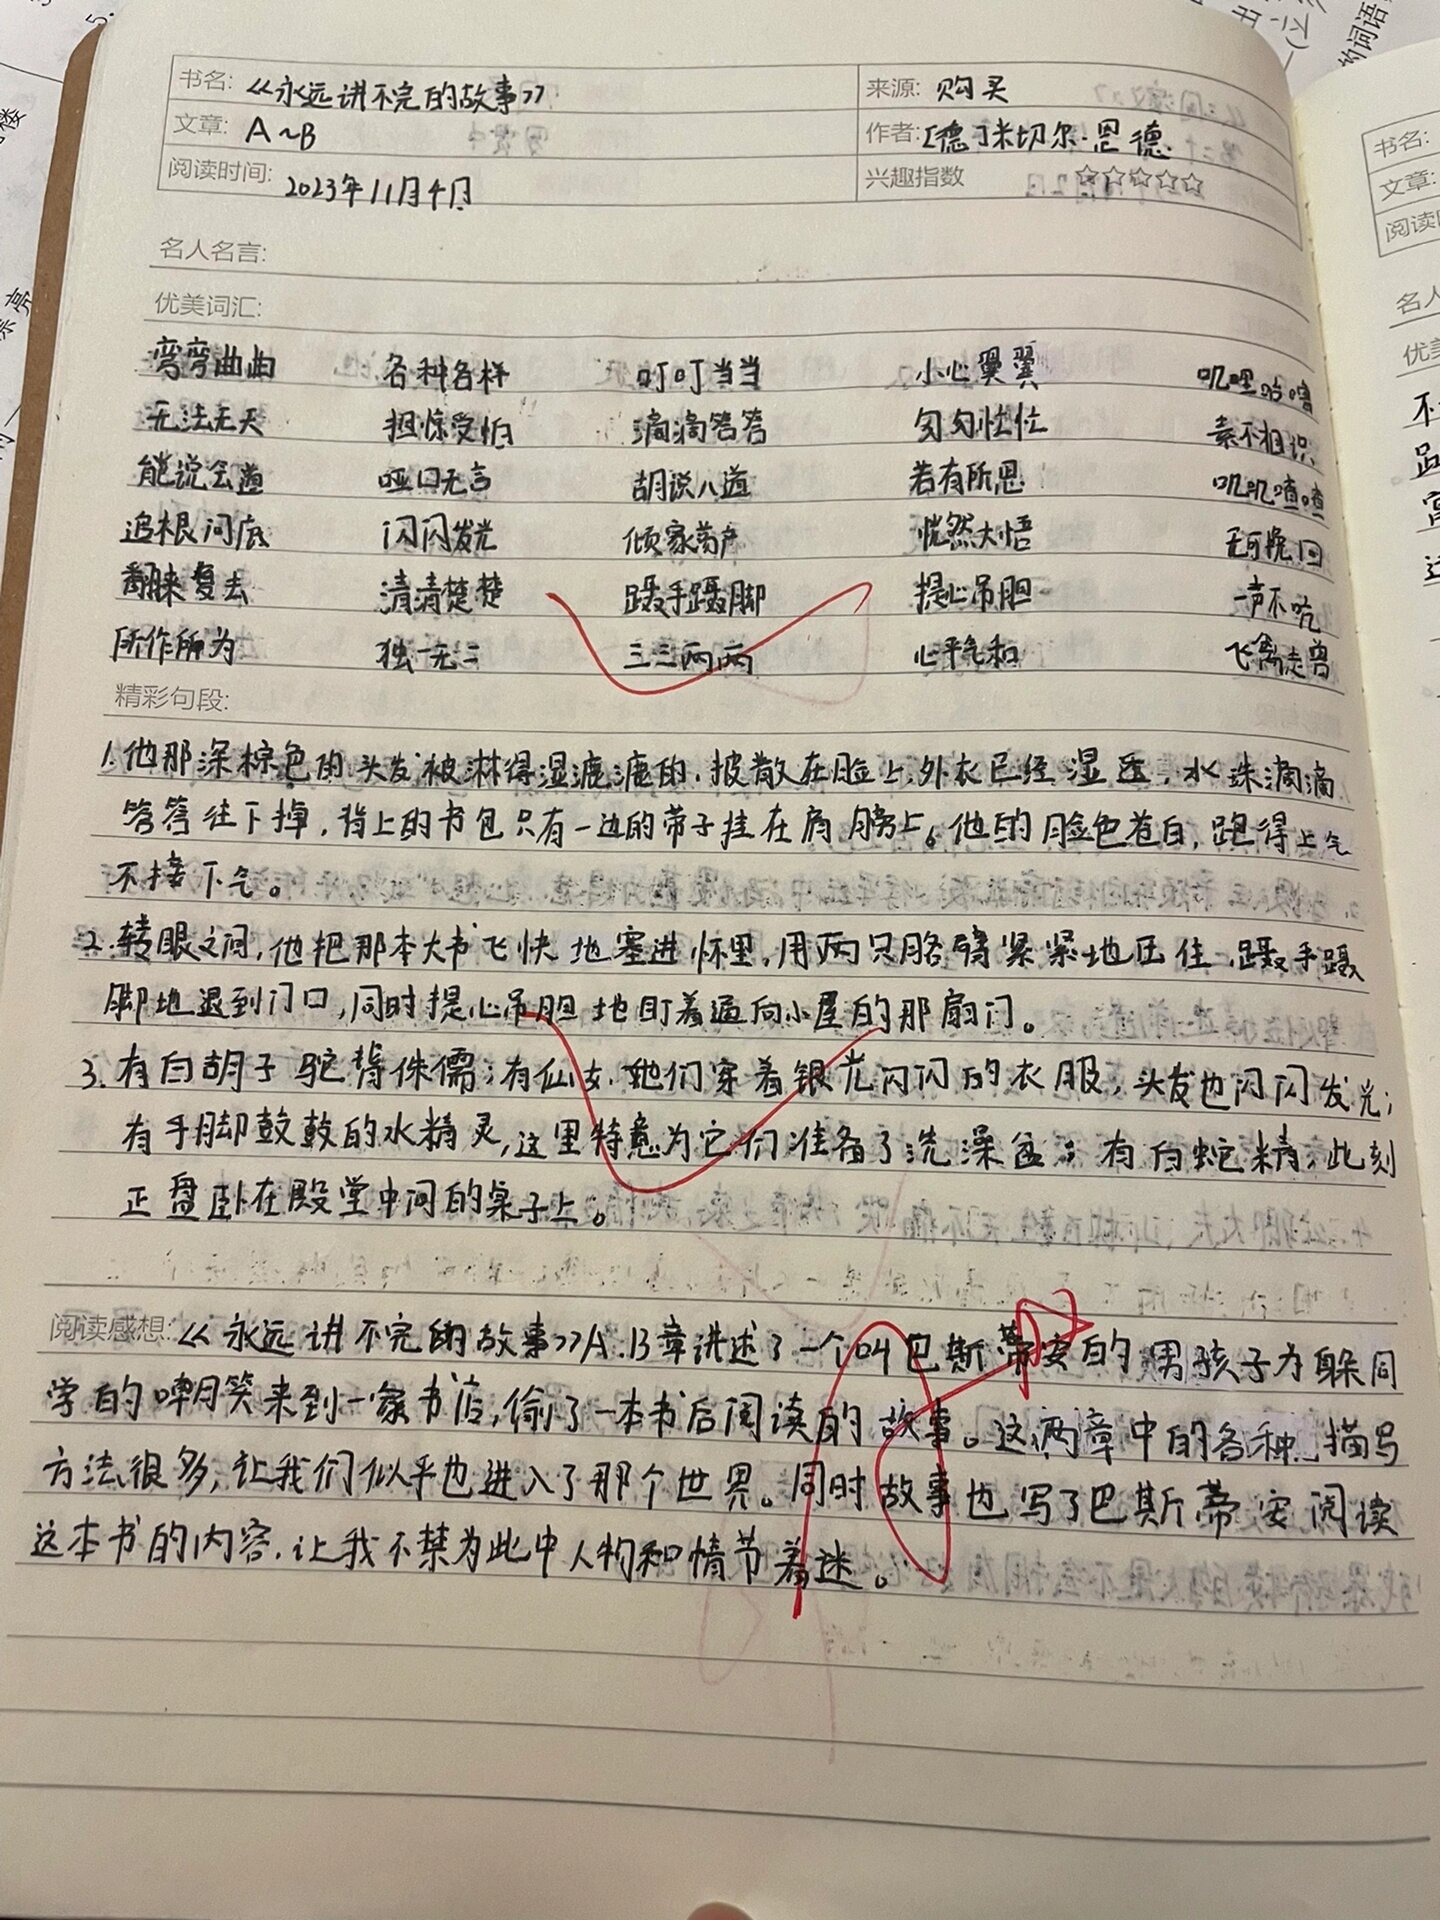 书名: 《永远讲不完的故事》 来源: 购买
文章: A~B 作者: [德]米切尔·恩德
阅读时间: 2023年11月4日 兴趣指数 ☆☆☆☆☆
名人名言:
优美词汇:
弯弯曲曲 各种各样 叮叮当当 小心翼翼 叽哩咕噜
无法无天 担惊受怕 滴滴答答 匆匆忙忙 素不相识
能说会道 哑口无言 胡说八道 若有所思 叽叽喳喳
追根问底 闪闪发光 倾家荡产 恍然大悟 无可挽回
翻来复去 清清楚楚 蹑手蹑脚 提心吊胆 一声不吭
所作所为 独一无二 三三两两 心平气和 飞禽走兽
精彩句段:
1.他那深棕色的头发被淋得湿漉漉的,披散在脸上,外衣已经湿透,水珠滴滴
答答往下掉,背上的书包只有一边的带子挂在肩膀上。他的脸色苍白,跑得上气
不接下气。
2.转眼之间,他把那本大书飞快地塞进怀里,用两只胳臂紧紧地压住,蹑手蹑
脚地退到门口,同时提心吊胆地盯着通向小屋的那扇门。
3.有白胡子驼背侏儒;有仙女,她们穿着银光闪闪的衣服,头发也闪闪发光;
有手脚鼓鼓的水精灵,这里特意为它们准备了洗澡盆;有白蛇精,此刻
正盘卧在殿堂中间的桌子上。
阅读感想:《永远讲不完的故事》A.B章讲述了一个叫巴斯蒂安的男孩子为躲同
学的嘲笑来到一家书店,偷了一本书后阅读的故事。这两章中的各种描写
方法很多,让我们似乎也进入了那个世界。同时故事也写了巴斯蒂安阅读
这本书的内容,让我不禁为此中人物和情节着迷。